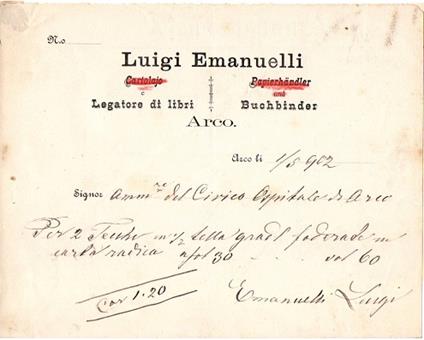 N.o
Luigi Emanuelli
Cartolajo Papierhändler
e und
Legatore di libri Buchbinder
Arco.
Arco li 1/5 902
Signor Amm.re del Civico Ospitale di Arco
Per 2 in 1/2 tella foderate in
carta radica a sol 30 sol 60
Cor 1.20
Emanuelli Luigi